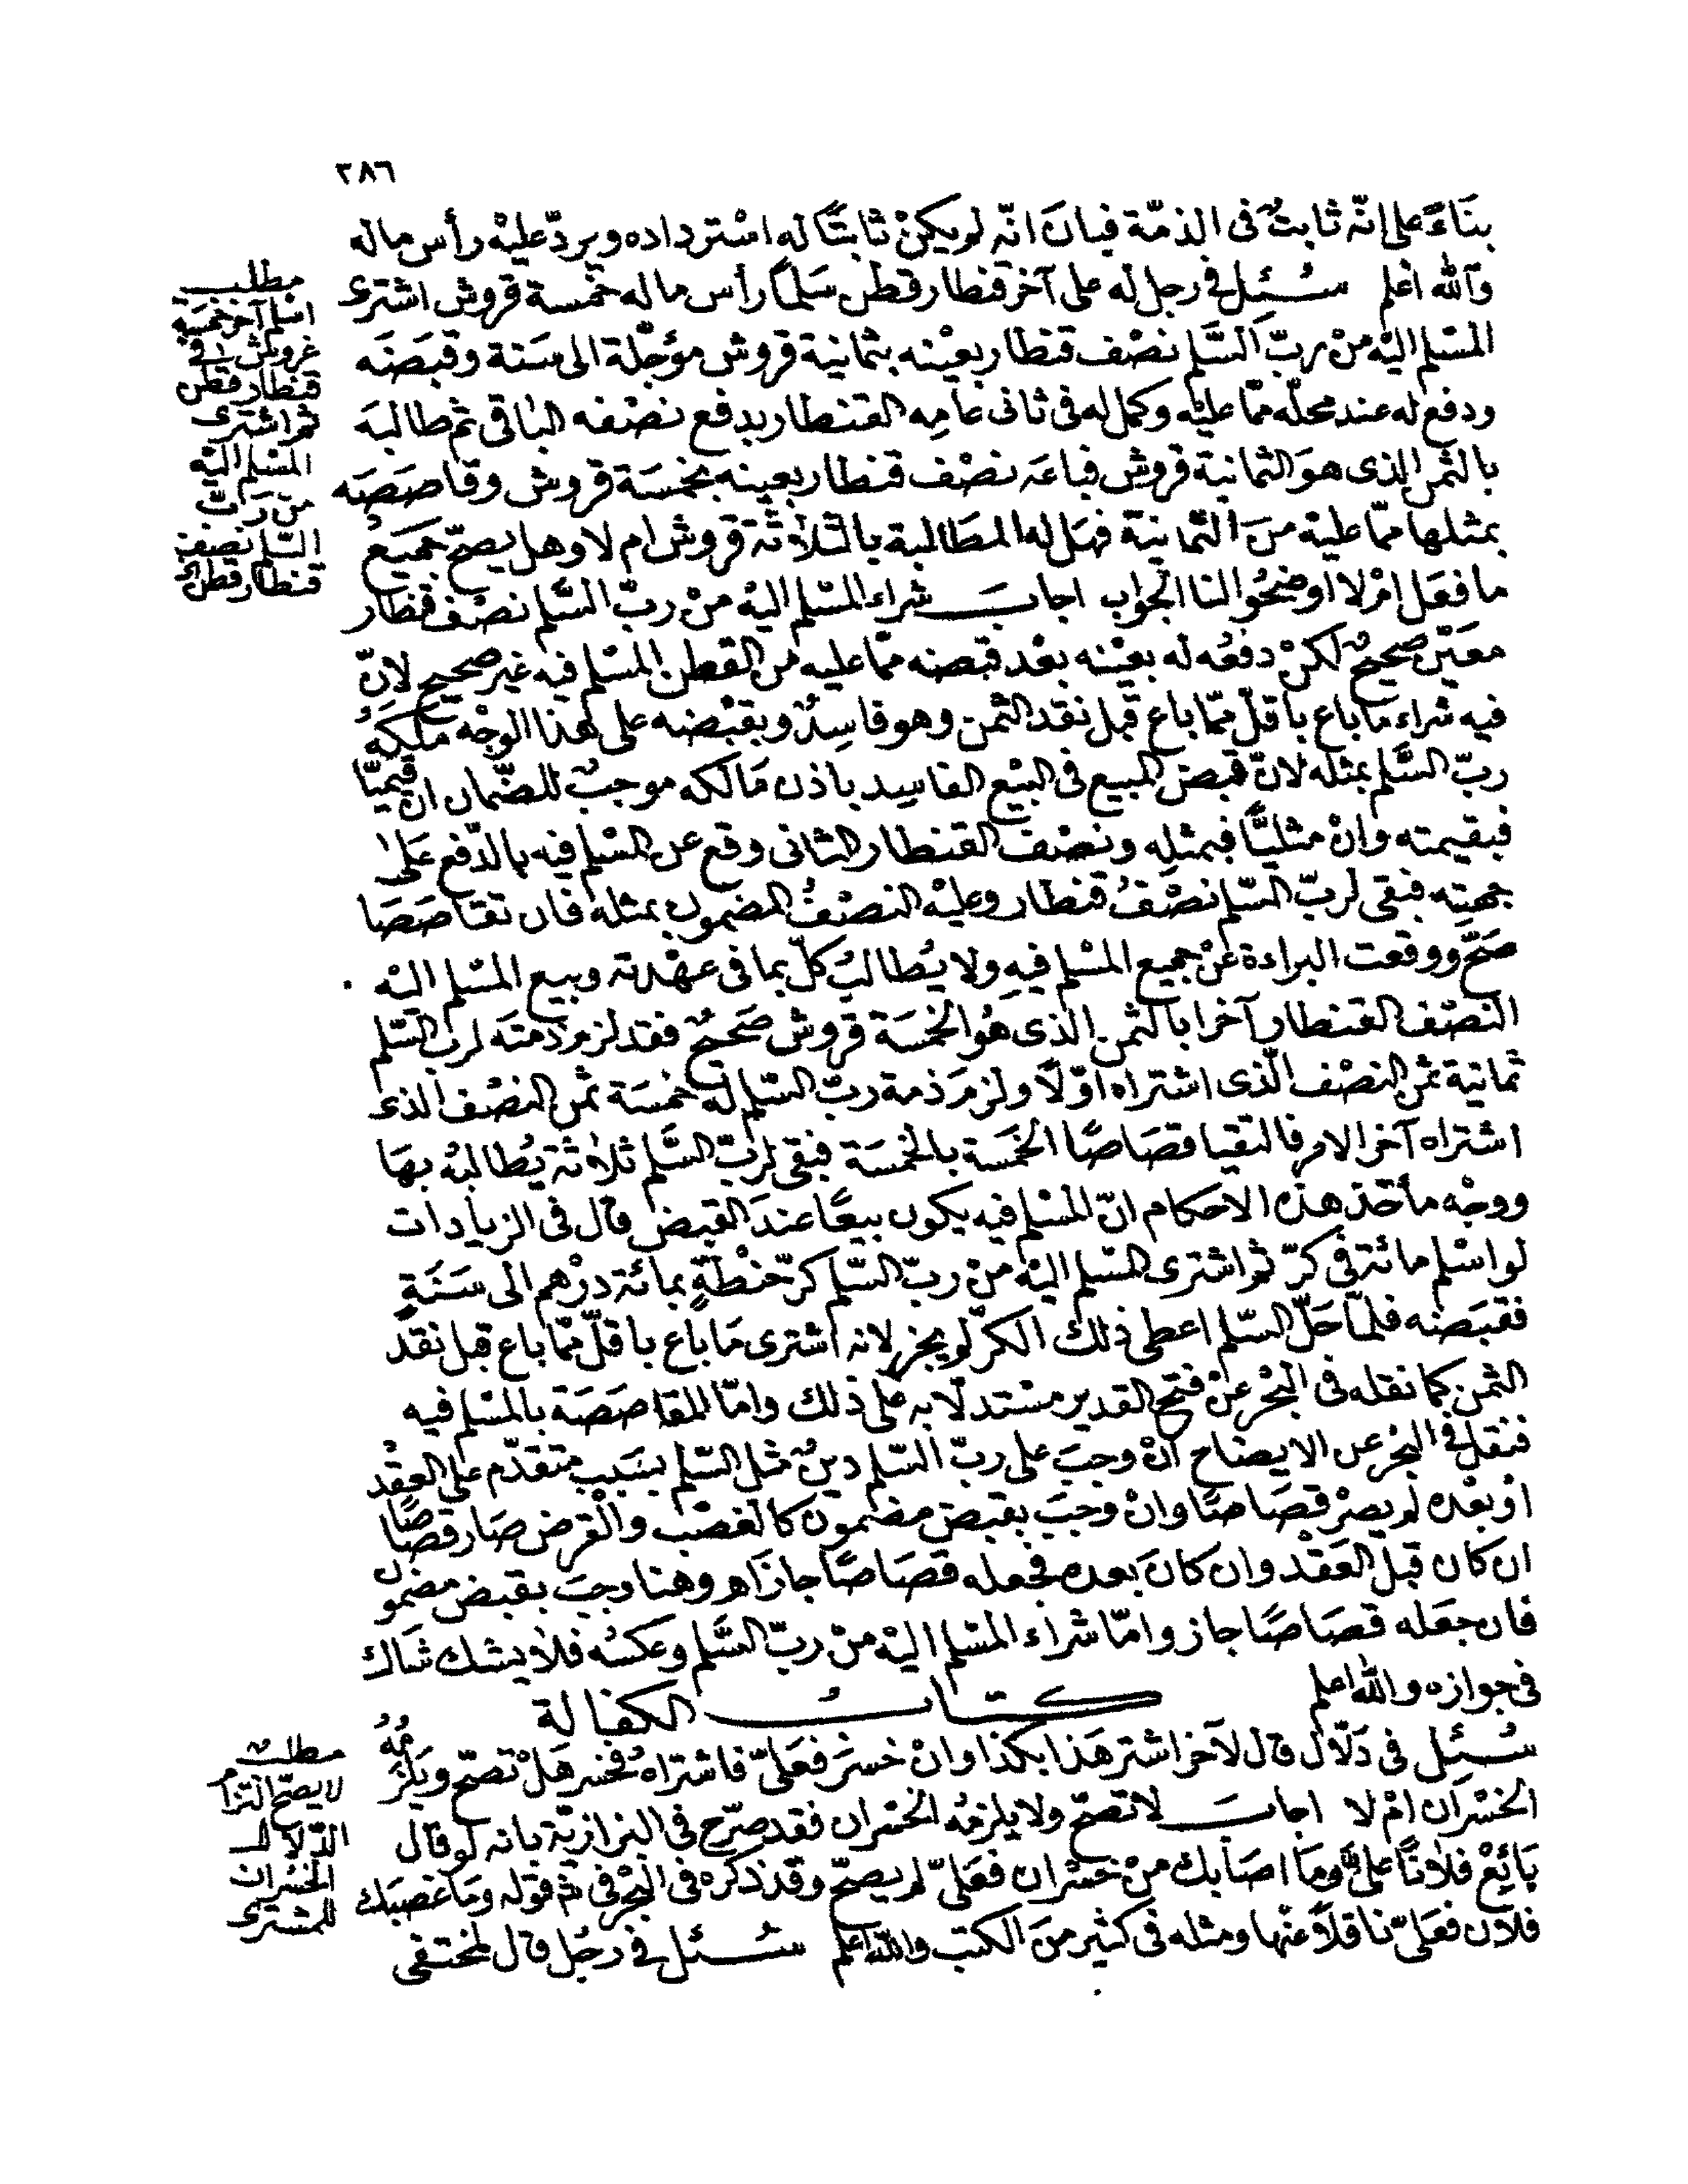 ٢٨٦
بناءً على انّه ثابتٌ فى الذمّة فبان انّه لم يكنْ ثابتًا له استرداده ويردّ عليْه رأس ماله
والله اعلم سُئِل فى رجل له على آخر قنطار قطن سَلمًا رأس ماله خمسة قروش اشترى
المسْلم اليْه منْ ربّ السَّلم نصْف قنطار بعيْنه بثمانية قروش مؤجّلة الى سَنة وقبَضَه
ودفع له عند محلّه ممّا عليْه وكمل له فى ثانى عامِه القنطار بدفع نصْفه الباقى ثم طالبَه
بالثمن الذى هوَ الثمانية قروش فباعَه نصْف قنطار بعينه بخمسَة قروش وقاصَصَه
بمثلها ممّا عليْه منَ الثّمانية فهَل له المطَالبة بالثلاثة قروش ام لا وهل يصحّ جميعُ
ما فعَل امْ لا اوضحُوا لنا الجواب اجابَ شراء المسْلم اليْه منْ ربّ السَّلم نصْف قنطار
معَيّن صحيحٌ لكنْ دفعُه له بعيْنه بعْد قبْضه ممّا عليه من القطن المسْلم فيه غير صحيح لانّ
فيه شراء مَا باع باقلّ ممّا باع قبل نقد الثمن وهو فاسِدٌ وبقبْضه على هذا الوجْه ملكهُ
ربّ السَّلم بمثله لانّ قبض المبيع فى البيْع الفاسِد باذن مَالكه موجبٌ للضّمان ان قيميّا
فبقيمته وانْ مثليًّا فبمثلِه ونصْف القنطار الثانى وقع عن المسْلم فيه بالدّفع عَلى
جهتِه فبقى لربّ السّلم نصْفُ قنطار وعليْه النصْفُ المضمون بمثله فان تقاصَصَا
صَحّ ووقعت البراءة عنْ جميع المسْلم فيهِ ولا يُطالبُ كلّ بما فى عهْدته وبيع المسْلم اليْه
النصْف القنطار آخرا بالثمن الذى هُو الخمسَة قروش صَحيحٌ فقد لزم ذمتَه لربّ السّلم
ثمانية ثمن النصْف الّذى اشتراه اوّلًا ولزمَ ذمة ربّ السّلم له خمسَة ثمن النصْف الذى
اشتراه آخر الامر فالتقيا قصَاصًا الخمَسة بالخمسَة فبقى لربّ السَّلم ثلاثة يُطالبُه بهَا
ووجْه مأخذ هذه الاحكام انّ المسْلم فيه يكون بيعًا عندَ القبض قال فى الزيادات
لو اسْلم مائة فى كرّ ثم اشترى المسْلم اليْه منْ ربّ السّلم كرّ حنْطةٍ بمائة درْهم الى سَنَةٍ
فقبَضه فلمّا حَلّ السّلم اعطى ذلك الكرّ لم يجز لانه اشترى مَا باع باقلّ ممّا باع قبل نقد
الثمن كما نقله فى البحْر عنْ فتح القدير مسْتدلّا به على ذلك وامّا المقاصَصَة بالمسْلم فيه
فنقل فى البحْر عن الايضاح انْ وجبَ على ربّ السّلم دينٌ مثل السّلم بسَبب متقدّم على العقْد
اوْ بعْده لم يصرْ قصَاصًا وانْ وجبَ بقبض مضمون كالغصْب والْقرض صَار قصَاصًا
ان كان قبل العَقْد وان كانَ بعده فجعله قصَاصًا جازَ اهـ وهنا وجبَ بقبض مضمون
فان جعَله قصَاصًا جاز وامّا شراء المسْلم اليْه منْ ربّ السَّلم وعكسُه فلا يشك شَاك
فى جوازه والله اعلم
كتابُ الكفالة
سُئِل فى دَلّال قال لآخر اشتر هَذا بكذا وانْ خسرَ فعَلىّ فاشتراهُ فخسر هَلْ تصحّ ويَلزمُهُ
الخسْران امْ لا اجابَ لا تصحّ ولا يلزمُه الخسْران فقد صرّح فى البزازيّة بانه لو قال
بَائِعْ فلانًا على انّ وما اصَابك منْ خسْران فعَلىّ لم يصحّ وقد ذكره فى البحْر فى شرح قوله ومَا غصبك
فلان فعَلىّ ناقلاً عنْها ومثله فى كثير منَ الكتب والله اعلم سُئل فى رجُل قال لمختفى
مطلب
اسْلم آخر خمسَة
غروش فى
قنطار قطن
ثم اشترى
المسْلم اليْه
من رَبّ
السّلم نصف
قنطار قطن
مطلب
لا يصحّ التزام
الدّلال
الخسْران
للمشترى